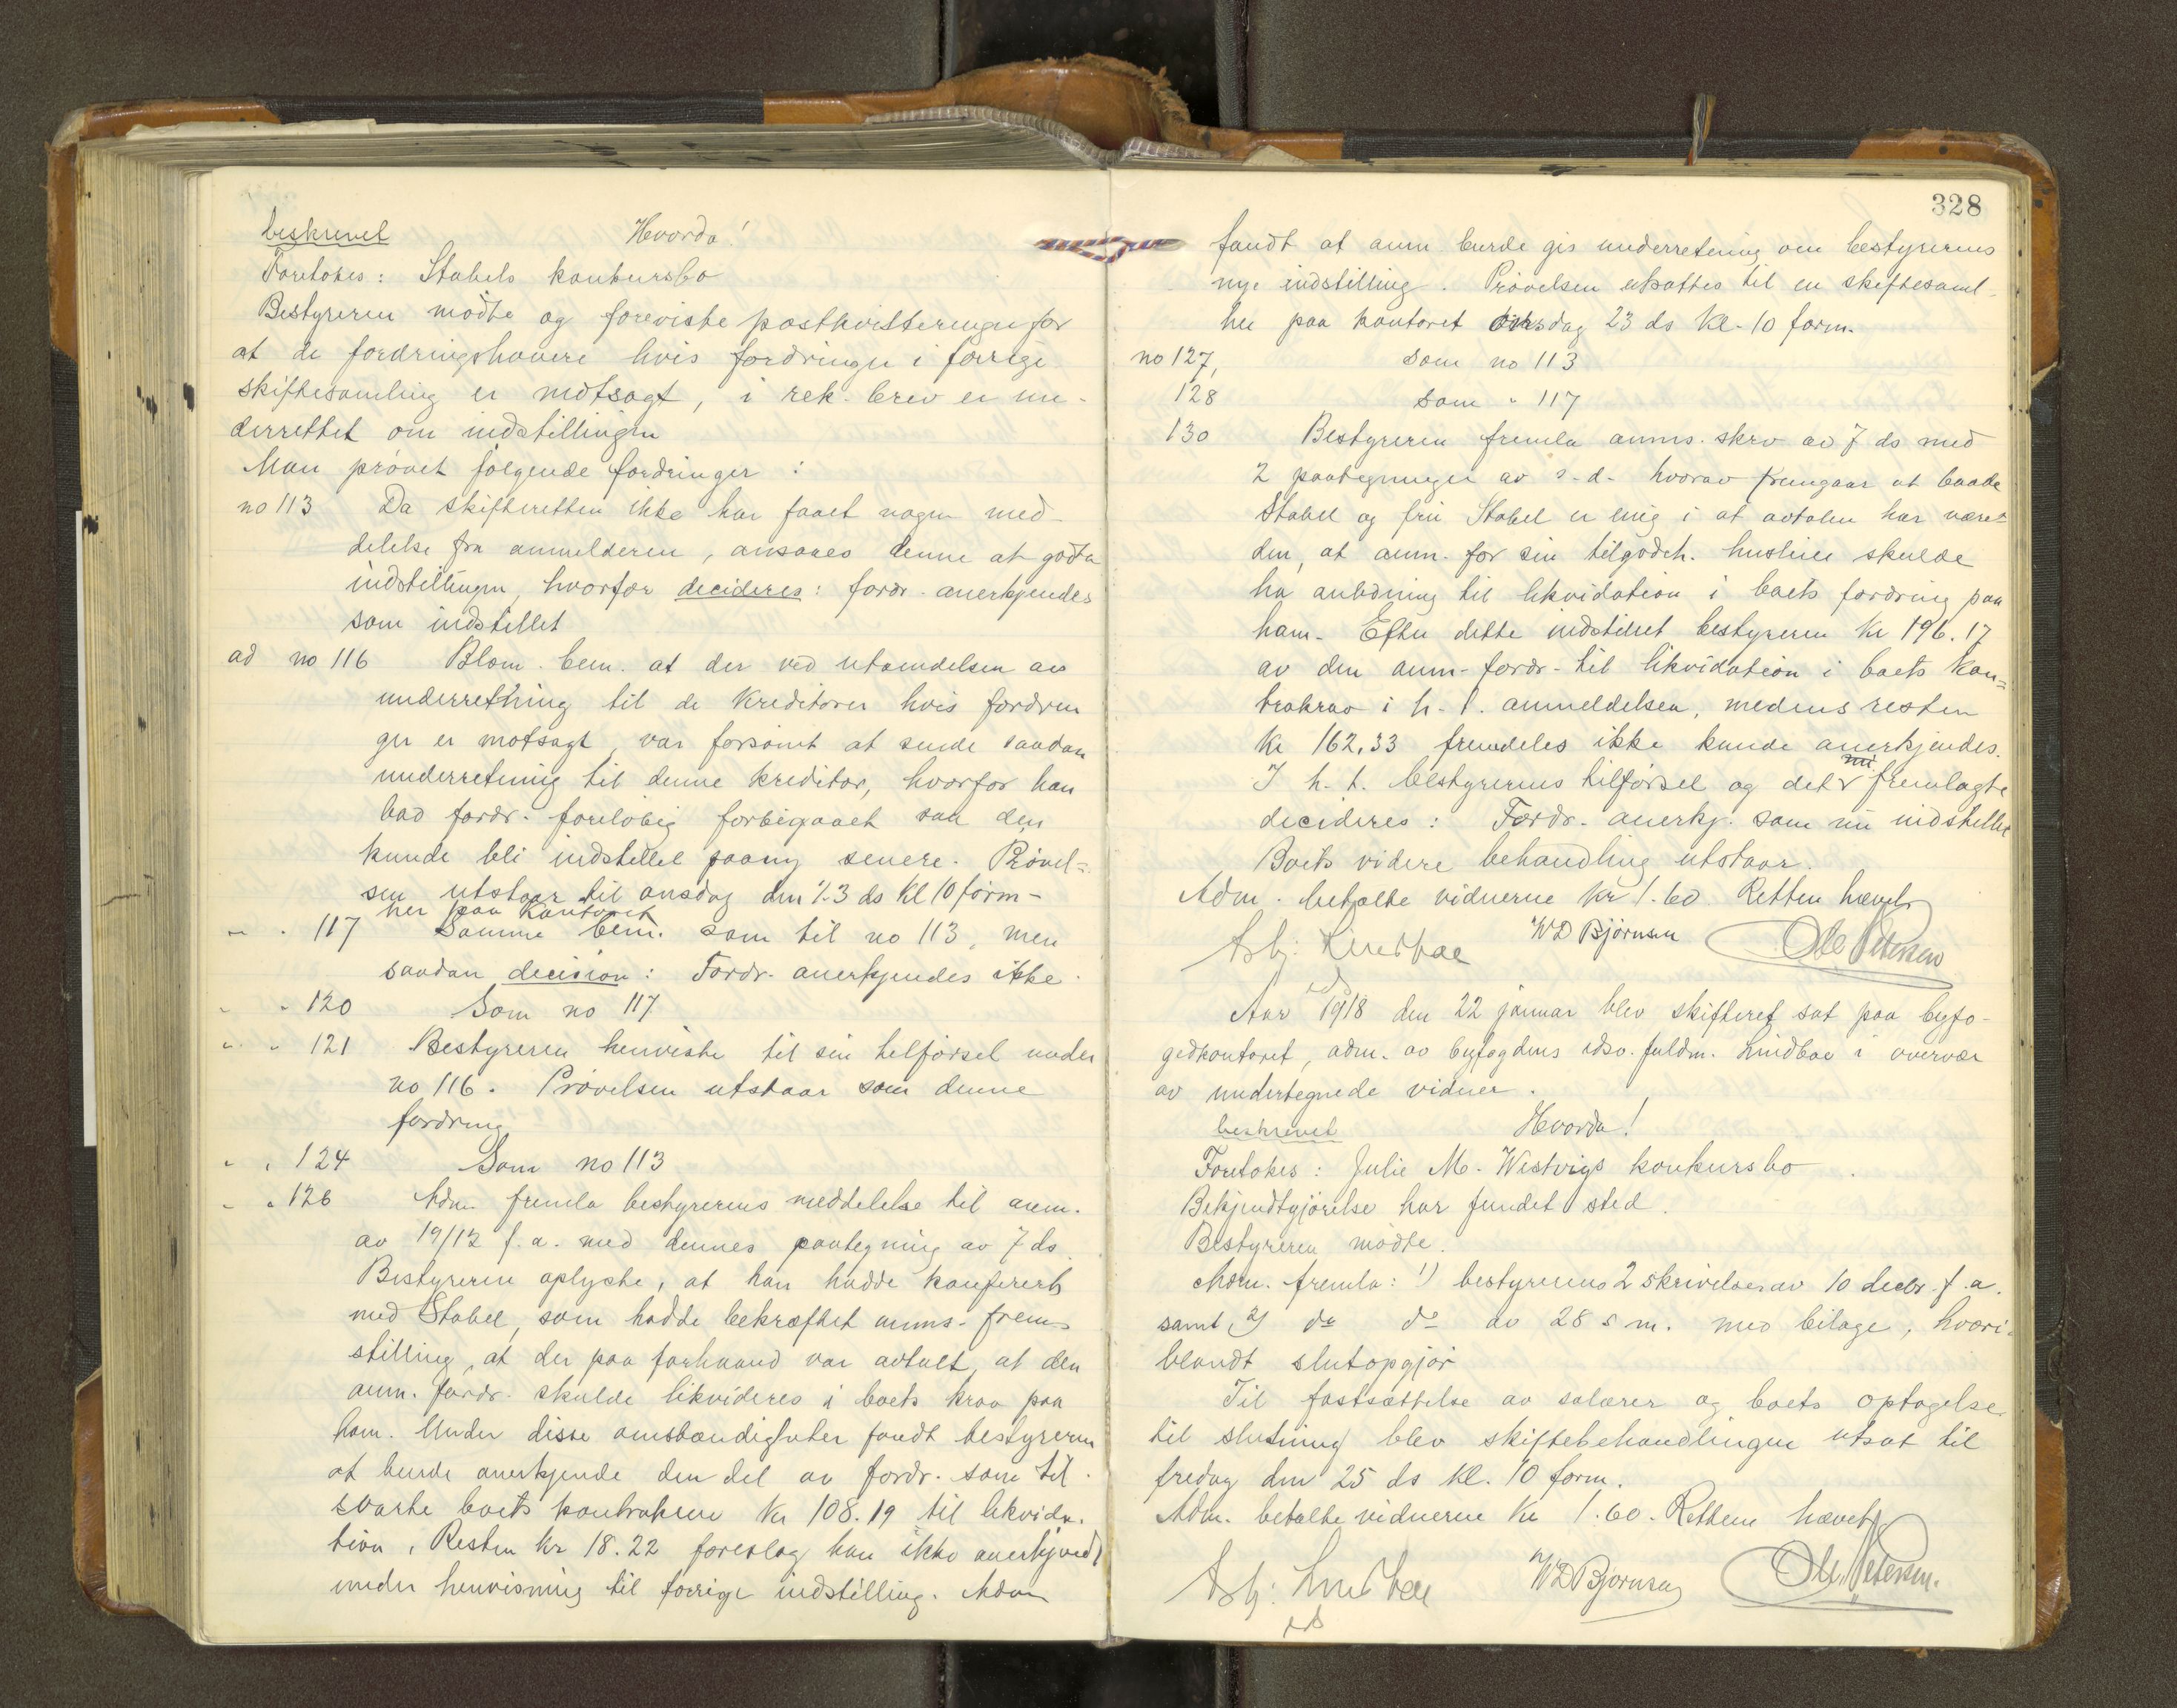 beskrevet Hvorda!
Foretokes: Stabels konkursbo
Bestyreren mødte og foreviste postkvitteringer for
at de fordringshavere hvis fordringer i forrige
skiftesamling er motsagt, i rek. brev er un-
derrettet om indstillingen
Man prøvet følgende fordringer:
no 113 Da skifteretten ikke har faaet nogen med-
delelse fra anmelderen, ansaaes denne at godta
indstillingen, hvorfor decideres: fordr. anerkjendes
som indstillet
ad no 116 Blom. bem. at der ved utsendelsen av
underretning til de kreditorer hvis fordrin
ger er motsagt, var forsømt at sende saadan
underretning til denne kreditor, hvorfor han
bad fordr. foreløbig forbigaaet saa den
kunde bli indstillet paany senere. Prøvel=
sen utstaar til onsdag den 23 ds kl 10 form-
her paa kontoret
" " 117 Samme bem. som til no 113, men
saadan decision: Fordr. anerkjendes ikke.
" " 120 Som no 117
" " 121 Bestyreren henviste til sin tilførsel under
no 116. Prøvelsen utstaar som denne
fordring
" " 124 Som no 113
" " 126 Adm. fremla bestyrerens meddelelse til anm.
av 19/12 f.a. med dennes paategning av 7 ds.
Bestyreren oplyste, at han hadde konferert
med Stabel, som hadde bekræftet anms. frem=
stilling, at der paa forhaand var avtalt, at den
anm. fordr. skulde likvideres i boets krav paa
ham. Under disse omstændigheter fandt bestyreren
at burde anerkjende den del av fordr. som til-
svarte boets kontrakrav kr 108.19 til likvida-
tion. Resten kr 18.22 foreslog han ikke anerkjendt
under henvisning til forrige indstilling. Adm
328
fandt at anm burde gis underretning om bestyrerens
nye indstilling. Prøvelsen utsattes til en skiftesaml-
her paa kontoret onsdag 23 ds kl. 10 form.
no 127, som no 113
128 som " 117
130 Bestyreren fremla anms. skrv av 7 ds med
2 paategninger av s.d. hvorav fremgaar at baade
Stabel og fru Stabel er enig i at avtalen har være=
den, at anm. for sin tilgodeh. husleie skulde
ha anledning til likvidation i boets fordring paa
ham. Efter dette indstillet bestyreren kr 196.17
av den anm. fordr. til likvidation i boets kon=
trakrav i h. t. anmeldelsen, medens resten
kr 162.33 fremdeles ikke kunde anerkjendes.
I h. t. bestyrerens tilførsel og det nu fremlagte
decideres: Fordr. anerkj. som nu indstillet
Boets videre behandling utstaar.
Adm. betalte vidnerne kr 1.60. Retten hævet
Asbj: Lindboe WD Bjørnsen Ole Petersen
Aar 1918 den 22 januar blev skifteret sat paa byfo-
gedkontoret, adm. av byfogdens edsv. fuldm. Lindboe i overvær
av undertegnede vidner.
beskrevet Hvorda!
Foretokes: Julie M. Westvigs konkursbo.
Bekjendtgjørelse har fundet sted.
Bestyreren mødte.
Adm. fremla: 1) bestyrerens 2 skrivelser av 10 decbr. f.a.
samt 2) do do av 28 s m. med bilage, hvori-
blandt slutopgjør
Til fastsættelse av salærer og boets optagelse
til slutning blev skiftebehandlingen utsat til
fredag den 25 ds kl. 10 form.
Adm. betalte vidnerne kr 1.60. Retten hævet
Asbj: Lindboe WD Bjørnsen Ole Petersen.